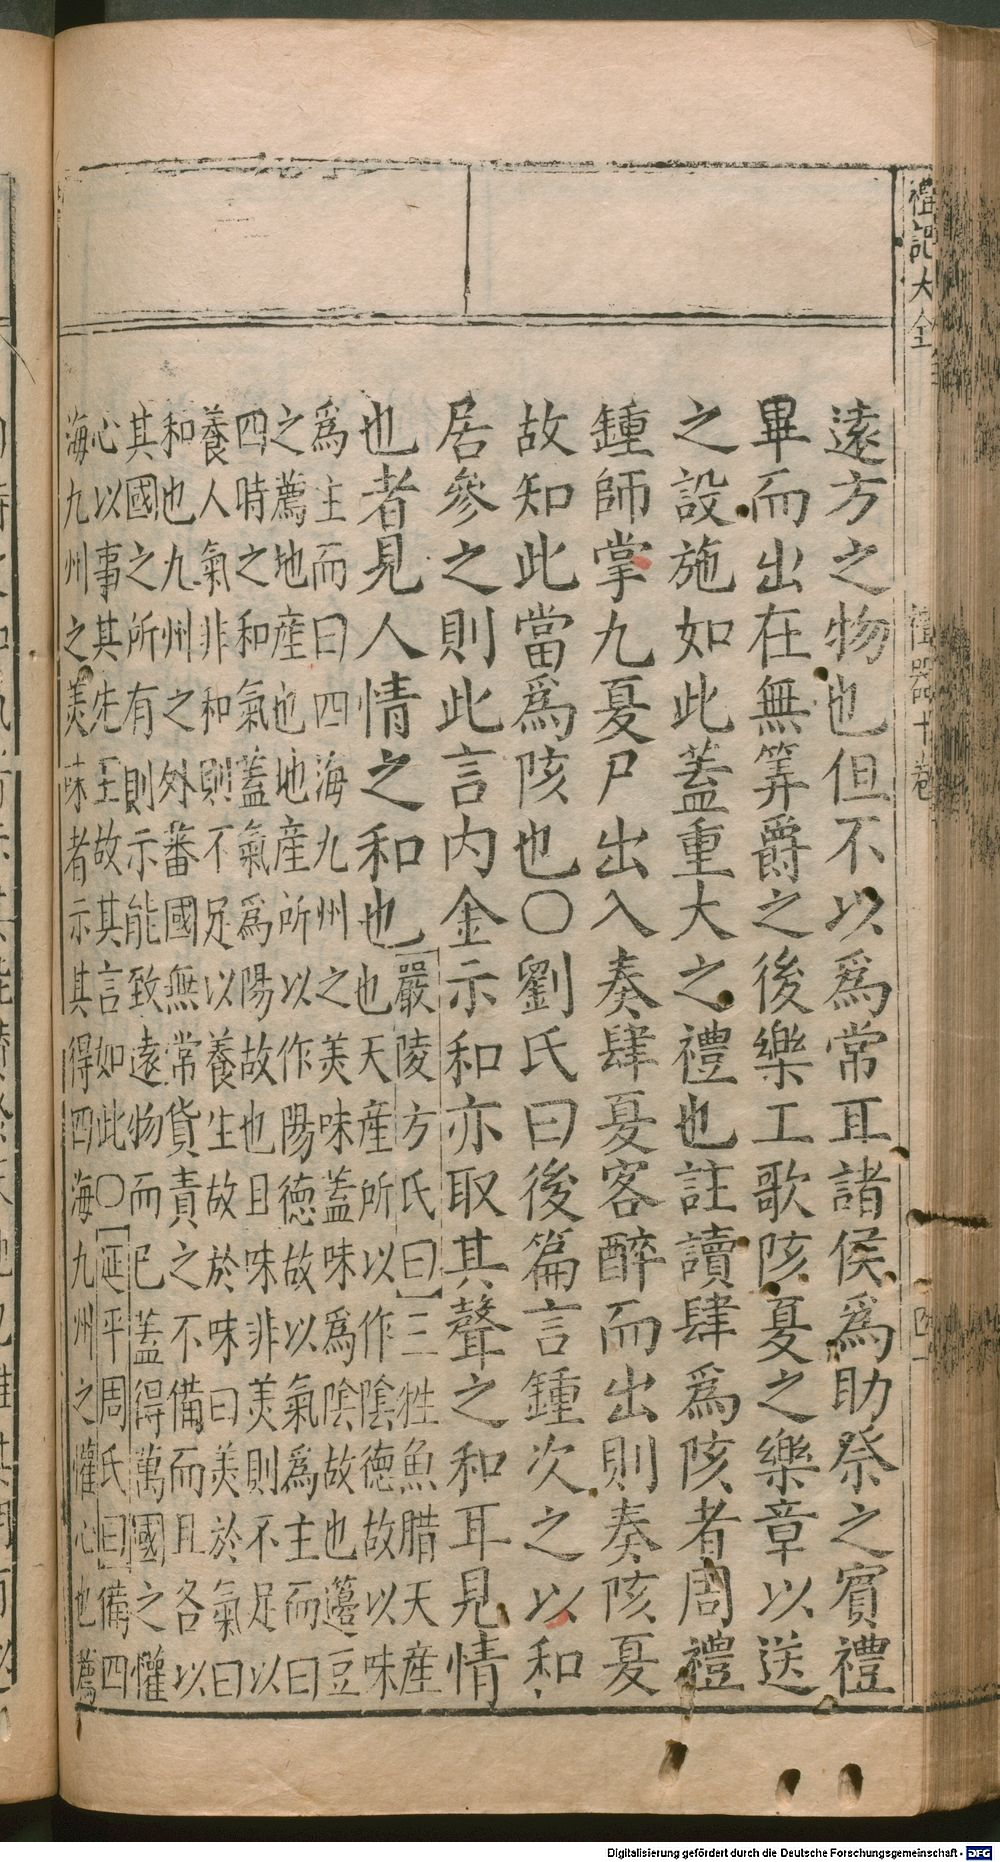 禮記大全
禮器十卷
四一
遠方之物也但不以爲常耳諸侯爲助祭之賓禮
畢而出在無筭爵之後樂工歌陔夏之樂章以送
之設施如此蓋重大之禮也註讀肆爲陔者周禮
鍾師掌九夏尸出入奏肆夏客醉而出則奏陔夏
故知此當爲陔也〇劉氏曰後篇言鍾次之以和
居參之則此言内金示和亦取其聲之和耳見情
也者見人情之和也
嚴陵方氏曰三牲魚腊天産
也天産所以作陰德故以味
爲主而曰四海九州之美味蓋味爲陰故也籩豆
之薦地産也地産所以作陽德故以氣爲主而曰
四時之和氣蓋氣爲陽故也且味非美則不足以
養人氣非和則不足以養生故於味曰美於氣曰
和也九州之外蕃國無常貨責之不備而且各以
其國之所有則示能致遠物而已蓋得萬國之懽
心以事其先王故其言如此〇延平周氏曰備四
海九州之美味者示其得四海九州之懽心也薦
Digitalisierung gefördert durch die Deutsche Forschungsgemeinschaft - DFG